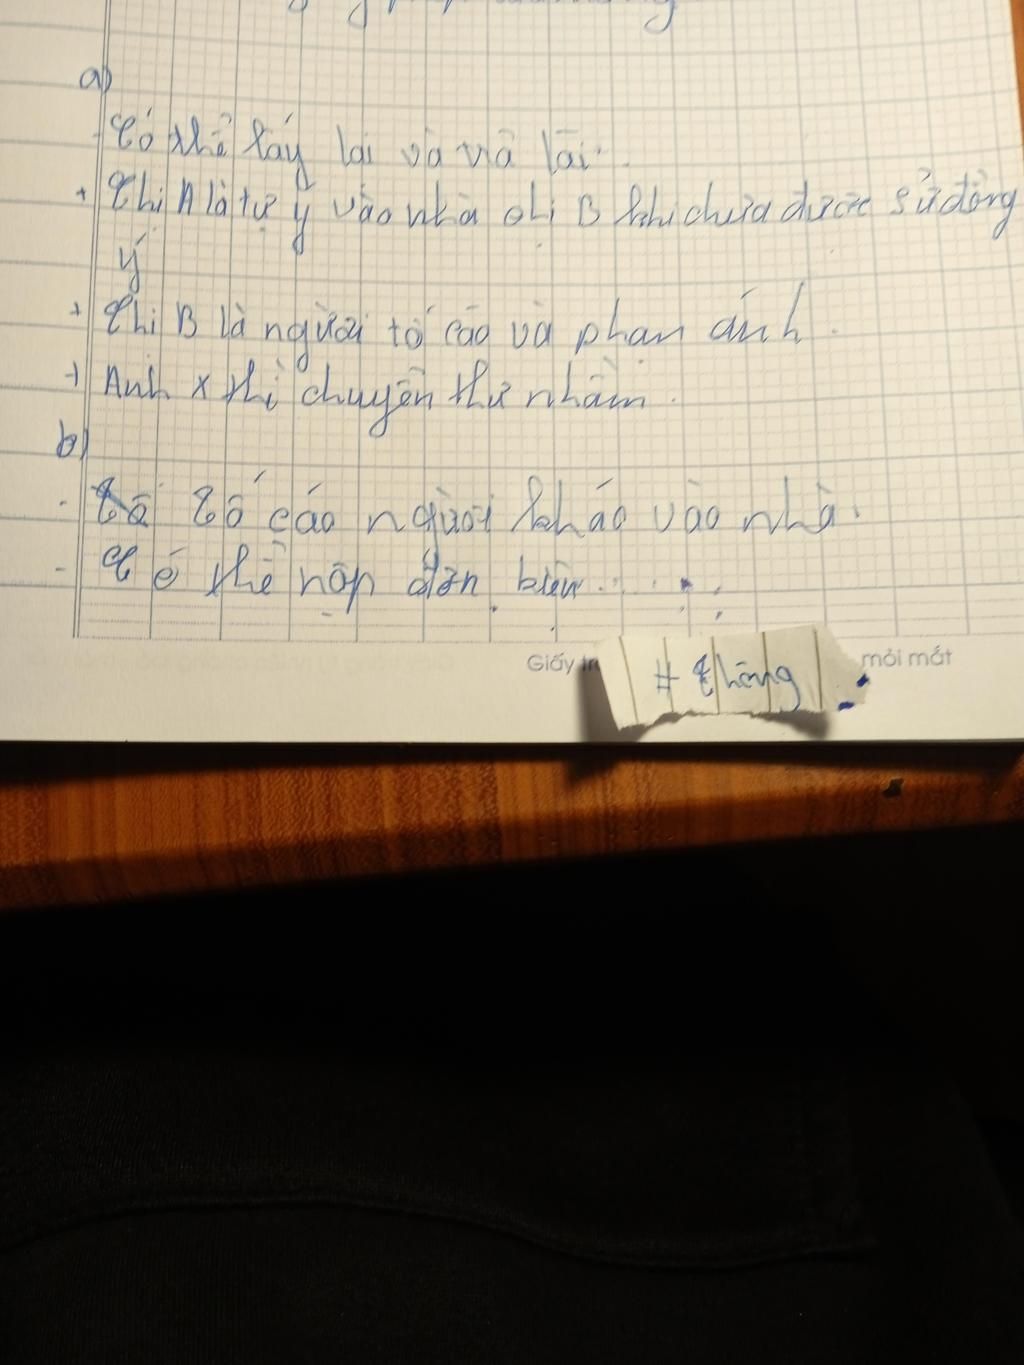 a)
- Có thể lấy lại và trả lại.
+ Chị A là tự ý vào nhà chị B khi chưa được sử đồng
ý
+ Chị B là người tố cáo và phan ánh.
+ Anh X thì chuyển thư nhầm.
b)
- Tố cáo người kháo vào nhà.
- Có thể nộp đơn kiện.
Giấy mỏi mắt